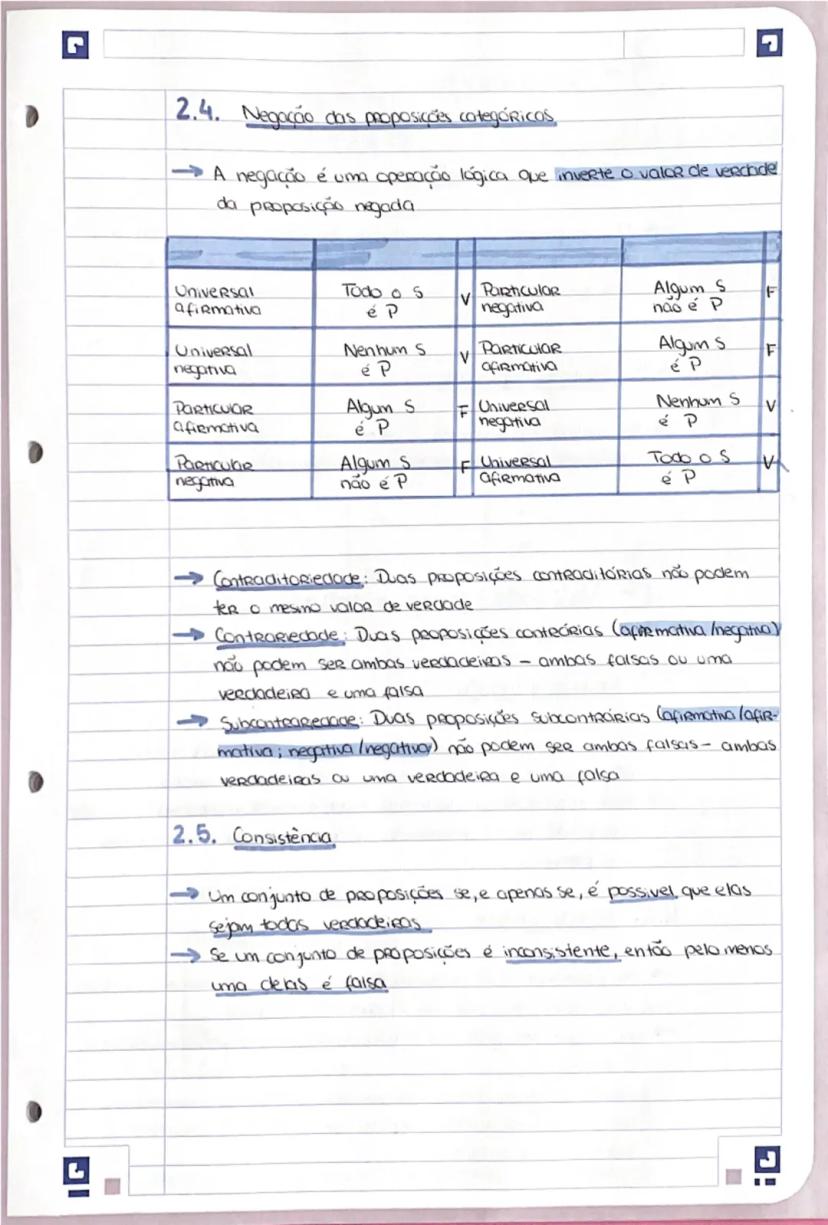 2.4. Negação das proposições categóricas
→ A negação é uma operação lógica que inverte o valor de verdade
da proposição negada
Universal afirmativa | Todo o S é P | V | Particular negativa | Algum S não é P | F
Universal negativa | Nenhum S é P | V | Particular afirmativa | Algum S é P | F
Particular afirmativa | Algum S é P | F | Universal negativa | Nenhum S é P | V
Particular negativa | Algum S não é P | F | Universal afirmativa | Todo o S é P | V
→ Contraditoriedade: Duas proposições contraditórias não podem
ter o mesmo valor de verdade
→ Contrariedade: Duas proposições contrárias (afirmativa/negativa)
não podem ser ambas verdadeiras - ambas falsas ou uma
verdadeira e uma falsa
→ Subcontrariedade: Duas proposições subcontrárias (afirmativa/afir-
mativa; negativa/negativa) não podem ser ambas falsas - ambas
verdadeiras ou uma verdadeira e uma falsa
2.5. Consistência
→ Um conjunto de proposições se, e apenas se, é possível que elas
sejam todas verdadeiras
→ Se um conjunto de proposições é inconsistente, então pelo menos
uma delas é falsa